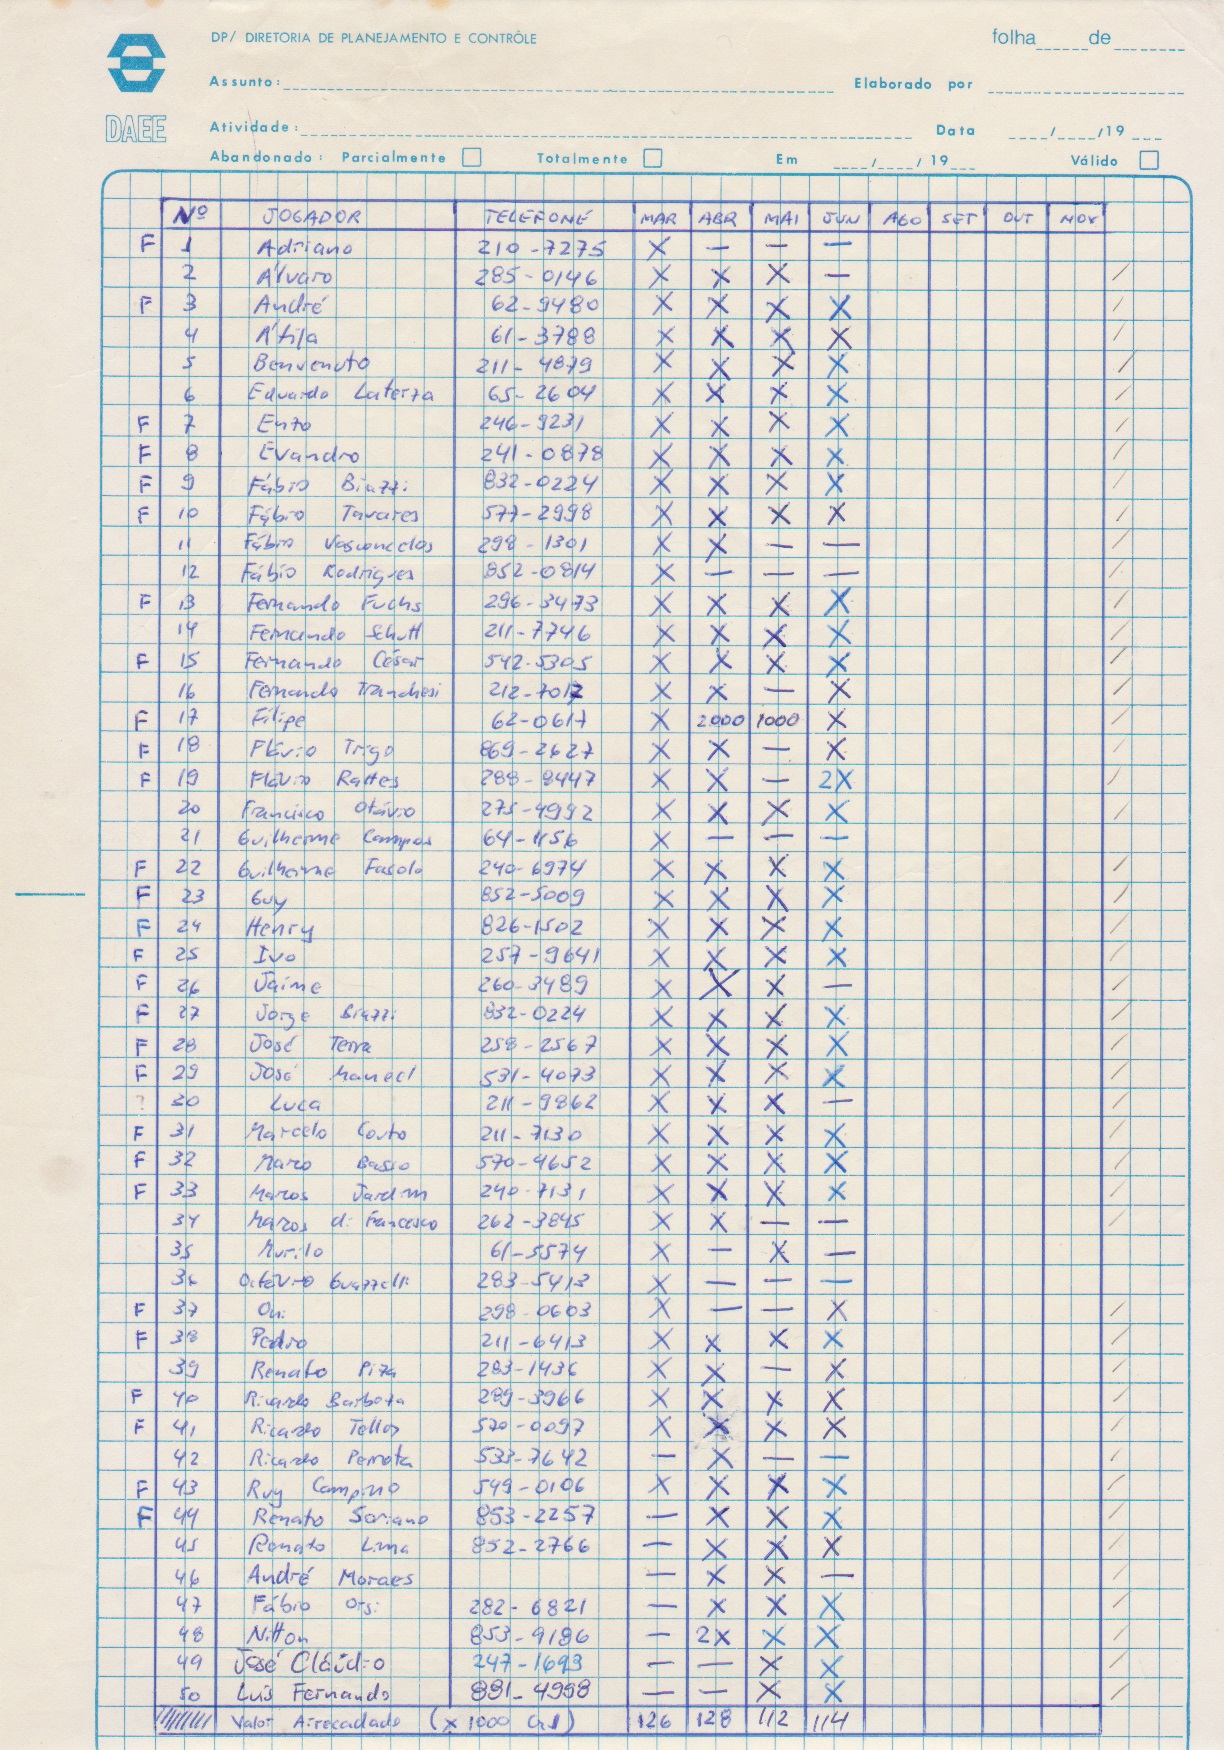 DP/ DIRETORIA DE PLANEJAMENTO E CONTRÔLE folha de
Assunto: Elaborado por
DAEE
Atividade: Data / /19
Abandonado: Parcialmente Totalmente Em / / 19 Válido
Nº JOGADOR TELEFONE MAR ABR MAI JUN AGO SET OUT NOV
F 1 Adriano 210-7275 X — — —
2 Álvaro 285-0146 X X X — /
F 3 André 62-9480 X X X X /
4 Átila 61-3788 X X X X /
5 Benvenuto 211-4879 X X X X /
6 Eduardo Laterza 65-2604 X X X X /
F 7 Enzo 246-9231 X X X X /
F 8 Evandro 241-0878 X X X X /
F 9 Fábio Biazzi 832-0224 X X X X /
F 10 Fábio Tavares 577-2998 X X X X /
11 Fábio Vasconcelos 298-1301 X X — — /
12 Fábio Rodrigues 852-0814 X — — — /
F 13 Fernando Fuchs 296-3473 X X X X /
14 Fernando Schutt 211-7746 X X X X /
F 15 Fernando César 542-5305 X X X X /
16 Fernando Tranchesi 212-7017 X X — X /
F 17 Filipe 62-0617 X 2000 1000 X /
F 18 Flávio Trigo 869-2627 X X — X /
F 19 Flávio Rattes 288-8447 X X — 2X /
20 Francisco Otávio 275-4992 X X X X /
21 Guilherme Campos 64-1156 X — — —
F 22 Guilherme Fasolo 240-6974 X X X X /
F 23 Guy 852-5009 X X X X /
F 24 Henry 826-1502 X X X X /
F 25 Ivo 257-9641 X X X X /
F 26 Jaime 260-3489 X X X — /
F 27 Jorge Biazzi 832-0224 X X X X /
F 28 José Terra 258-2567 X X X X /
F 29 José Manoel 531-4073 X X X X /
? 30 Luca 211-9862 X X X — /
F 31 Marcelo Couto 211-7130 X X X X /
F 32 Marco Basso 570-4652 X X X X /
F 33 Marcos Jardim 240-7131 X X X X /
34 Marcos di Francesco 262-3845 X X — — /
35 Murilo 61-5574 X — X —
36 Octávio Guazzelli 283-5413 X — — —
F 37 Ori 298-0603 X — — X /
F 38 Pedro 211-6413 X X X X /
39 Renato Piza 283-1436 X X — X /
F 40 Ricardo Barbosa 289-3966 X X X X /
F 41 Ricardo Telles 570-0097 X X X X /
42 Ricardo Perrota 533-7642 — X — — /
F 43 Ruy Campino 549-0106 X X X X /
F 44 Renato Soriano 853-2257 — X X X /
45 Renato Lima 852-2766 — X X X /
46 André Moraes — X X — /
47 Fábio Orsi 282-6821 — X X X /
48 Nilton 853-9186 — 2X X X /
49 José Cláudio 247-1693 — — X X /
50 Luis Fernando 881-4998 — — X X /
Valor Arrecadado (x 1000 Cr$) 126 128 112 114